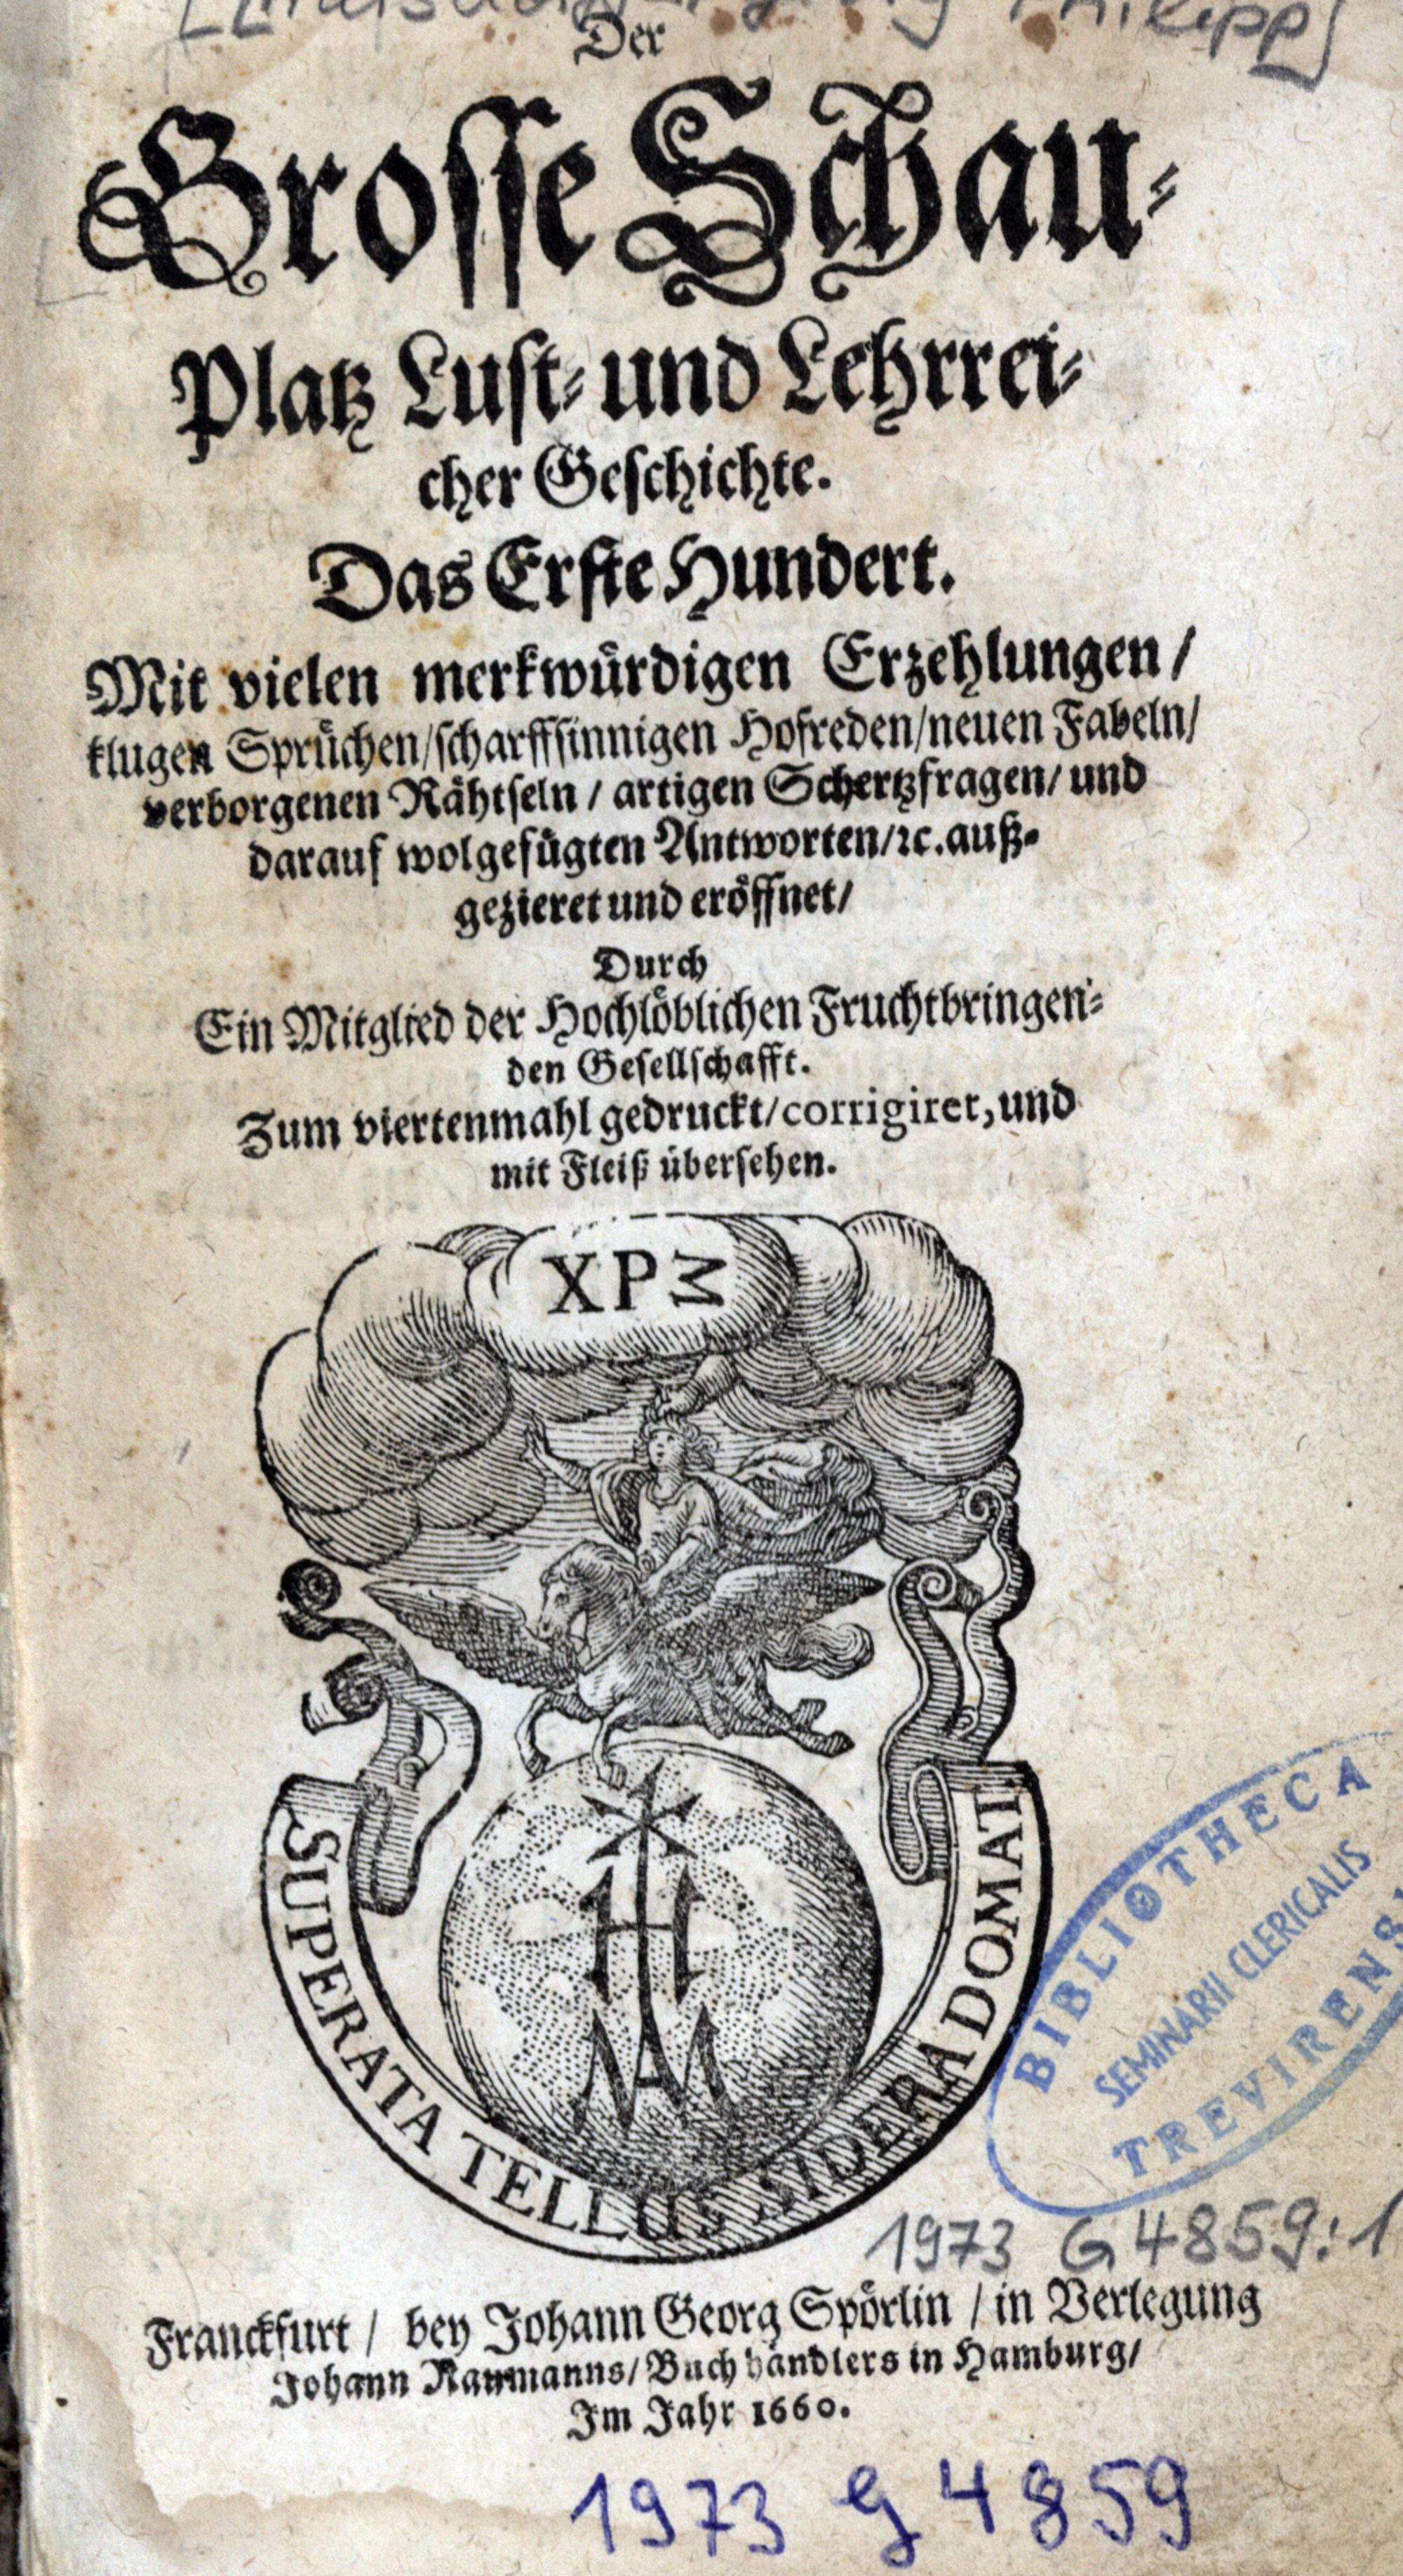 Philipp]
Der
Grosse Schau-
Platz Lust- und Lehrrei-
cher Geschichte.
Das Erste Hundert.
Mit vielen merkwürdigen Erzehlungen/
klugen Sprüchen/scharffsinnigen Hofreden/neuen Fabeln/
verborgenen Rähtseln / artigen Schertzfragen/ und
darauf wolgefügten Antworten/ꝛc. auß-
gezieret und eröffnet/
Durch
Ein Mitglied der Hochlöblichen Fruchtbringen-
den Gesellschafft.
Zum viertenmahl gedruckt/corrigiret, und
mit Fleiß übersehen.
XPΣ
SUPERATA TELLUS SIDERA DOMAT.
BIBLIOTHECA
SEMINARII CLERICALIS
TREVIRENS
1973 G 4859:1
Franckfurt / bey Johann Georg Spörlin / in Verlegung
Johann Naumanns/ Buchhändlers in Hamburg/
Im Jahr 1660.
1973 G 4859